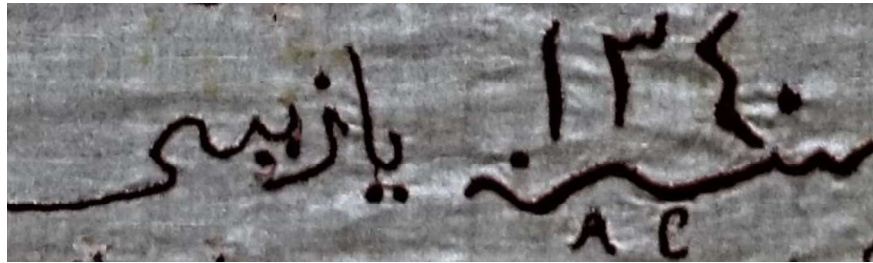 ١٣٤٠
سنه يازيسى
A C